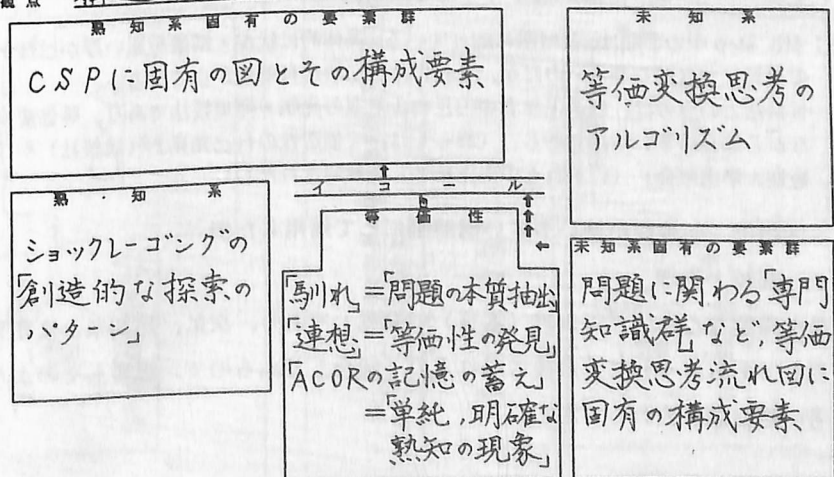 観点
熟知系固有の要素群
CSPに固有の図とその構成要素
未知系
等価変換思考の
アルゴリズム
イコール
等価性
熟知系
ショックレーゴングの
「創造的な探索の
パターン」
「馴れ」=「問題の本質抽出」
「連想」=「等価性の発見」
「ACORの記憶の蓄え」
=「単純,明確な
熟知の現象」
未知系固有の要素群
問題に関わる「専門
知識群」など,等価
変換思考流れ図に
固有の構成要素